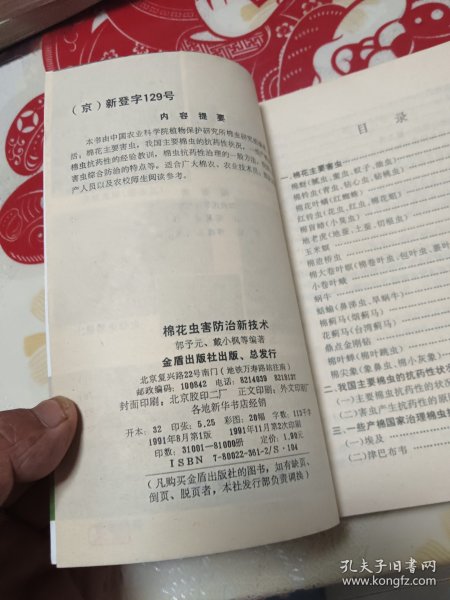 (京)新登字129号
内容提要
本书由中国农业科学院植物保护研究所棉虫研究
括:棉花主要害虫,我国主要棉虫的抗药性状况,
棉虫抗药性的经验教训,棉虫抗药性治理的一般方法,
害虫综合防治的特点等。适合广大棉农、农业技术员、
产人员以及农校师生阅读参考。
棉花虫害防治新技术
郭予元、戴小枫等编著
金盾出版社出版、总发行
北京复兴路22号南门(地铁万寿路站往南)
邮政编码:100842 电话:8214039 8218137
封面印刷:北京胶印二厂 正文印刷:外文印刷厂
各地新华书店经销
开本:32 印张:5.25 彩图:20幅 字数:113千字
1991年8月第1版 1991年11月第2次印刷
印数:31001—81000册 定价:1.90元
ISBN 7-80022-361-2/S·104
(凡购买金盾出版社的图书,如有缺页、
倒页、脱页者,本社发行部负责调换)
目录
一、棉花主要害虫
棉蚜(腻虫、蜜虫、蚁子、油虫)
棉铃虫(青虫、钻心虫、钻桃虫)
棉花叶螨(红蜘蛛)
红铃虫(花虫、红虫、棉花蛆)
棉盲蝽(小臭虫)
地老虎(地蚕、土蚕、切根虫)
玉米螟
棉造桥虫
棉大卷叶螟(棉卷叶虫、包叶虫、
小卷叶蛾
蜗牛
蛞蝓(鼻涕虫、旱蜗牛)
棉蓟马(烟蓟马)
花蓟马(台湾蓟马)
鼎点金刚钻
棉叶蝉(棉叶跳虫)
棉尖象(象鼻虫、棉小灰象)
二、我国主要棉虫的抗药性的状况
(一)主要棉虫抗药性的状况
(二)害虫产生抗药性的原
三、一些产棉国家治理棉虫
(一)埃及
(二)津巴布韦
孔夫子旧书网
www.kongfz.com